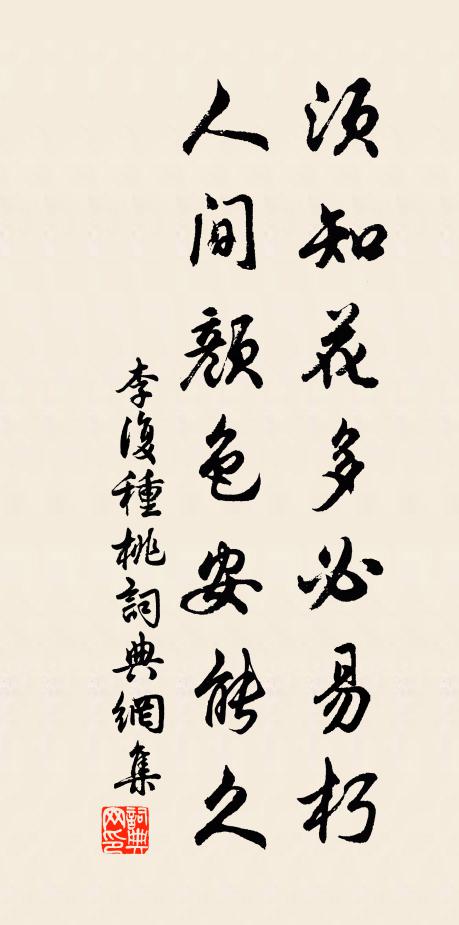 須知花多必易朽
人間顏色安能久
李復種桃詞典網集
詞典網印